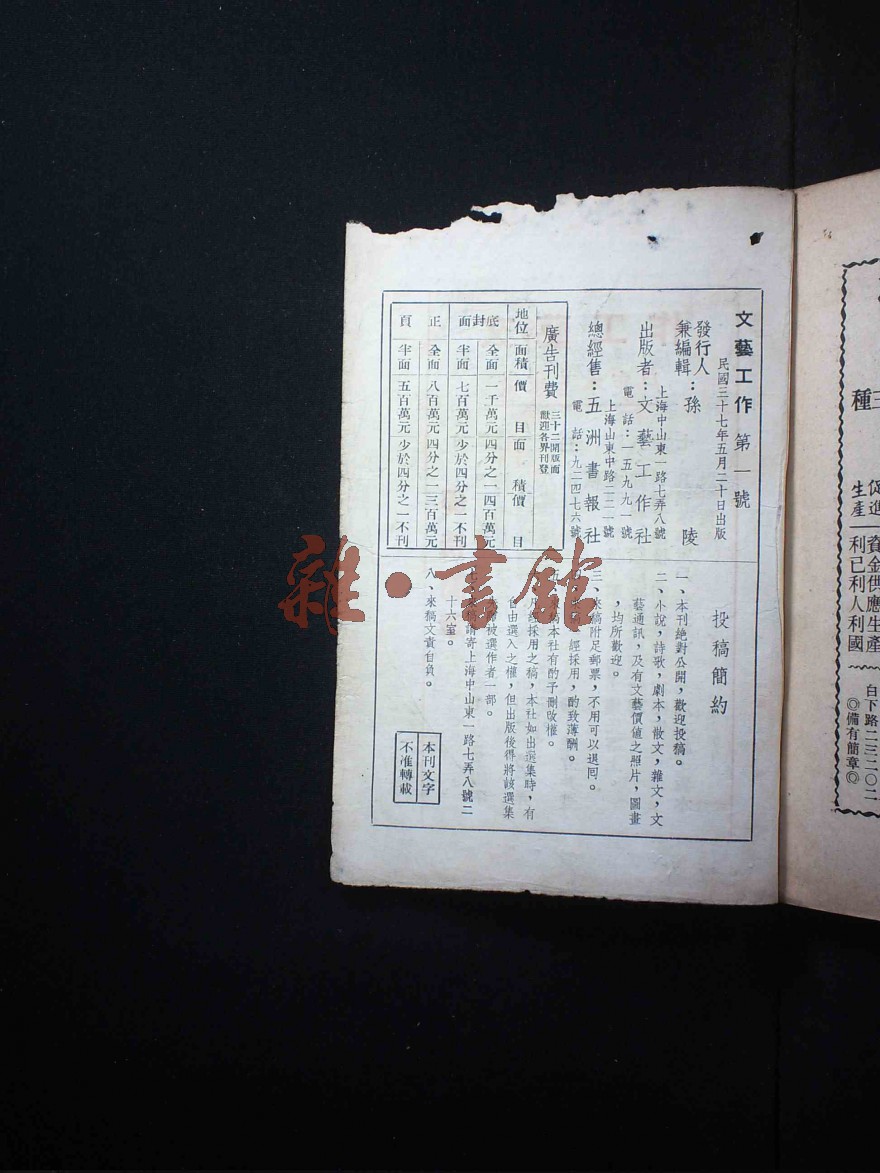 文藝工作 第一號
民國三十七年五月二十日出版
發行人
兼編輯：孫 陵
上海中山東一路七弄八號
出版者：文藝工作社
電話：一五九九一號
上海山東中路二二一號
總經售：五洲書報社
電話：九二四七六號
廣告刊費
三十二開版面
歡迎各界刊登
地位 面積 價目 面積 價目
底封面 全面 一千萬元 四分之一 四百萬元
半面 七百萬元 少於四分之一不刊
正頁 全面 八百萬元 四分之一 三百萬元
半面 五百萬元 少於四分之一不刊
投稿簡約
一、本刊絕對公開，歡迎投稿。
二、小說，詩歌，劇本，散文，雜文，文
藝通訊，及有文藝價值之照片，圖畫
，均所歡迎。
三、來稿附足郵票，不用可以退囘。
經採用，酌致薄酬。
稿本社有酌予刪改權。
經採用之稿，本社如出選集時，有
自由選入之權，但出版後得將該選集
被選作者一部。
來稿請寄上海中山東一路七弄八號二
十六室。
八、來稿文責自負。
本刊文字
不准轉載
雜·書館
種
促進生產
資金供應生產
利己利人利國
白下路二三二〇二
◎備有簡章◎